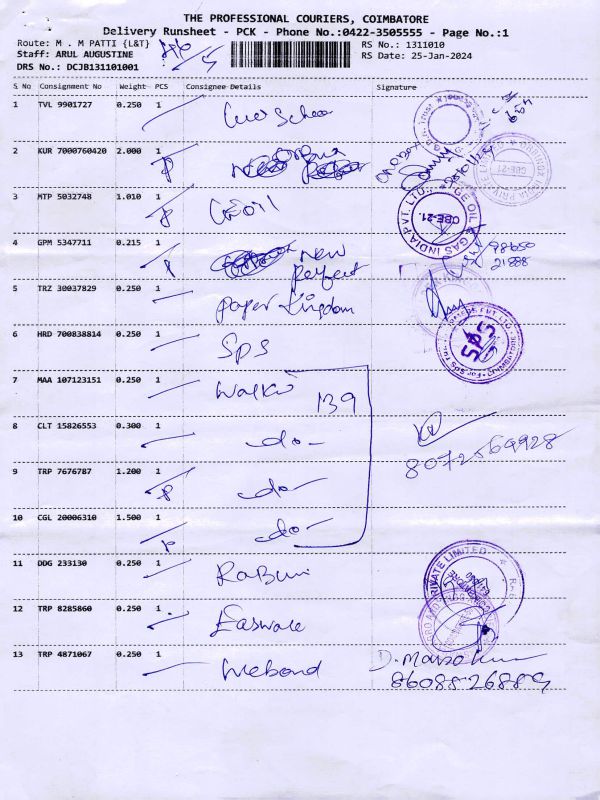 THE PROFESSIONAL COURIERS, COIMBATORE
Delivery Runsheet - PCK - Phone No.:0422-3505555 - Page No.:1
Route: M . M PATTI {L&T} RS No.: 1311010
Staff: ARUL AUGUSTINE RS Date: 25-Jan-2024
DRS No.: DCJB131101001
S No Consignment No Weight PCS Consignee Details Signature
1 TVL 9901727 0.250 1
2 KUR 7000760420 2.000 1
P
3 MTP 5032748 1.010 1 Geoil
P
GE OIL & GAS INDIA PVT. LTD.
CBE-21.
4 GPM 5347711 0.215 1 new
P perfect
98650
21888
5 TRZ 30037829 0.250 1 paper kingdom
6 HRD 700838814 0.250 1 SPS
SPS
7 MAA 107123151 0.250 1 139
8 CLT 15826553 0.300 1 -do-
8072569928
9 TRP 7676787 1.200 1 -do-
P
10 CGL 20006310 1.500 1 -do-
P
11 DDG 233130 0.250 1
PRIVATE LIMITED
12 TRP 8285860 0.250 1
13 TRP 4871067 0.250 1 Webond
8608826889